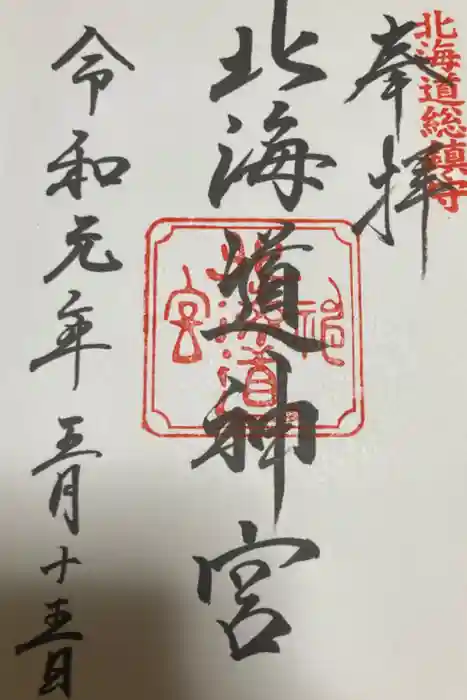 北海道総鎮守
奉拝
北海道神宮
北海道神宮
令和元年五月十五日